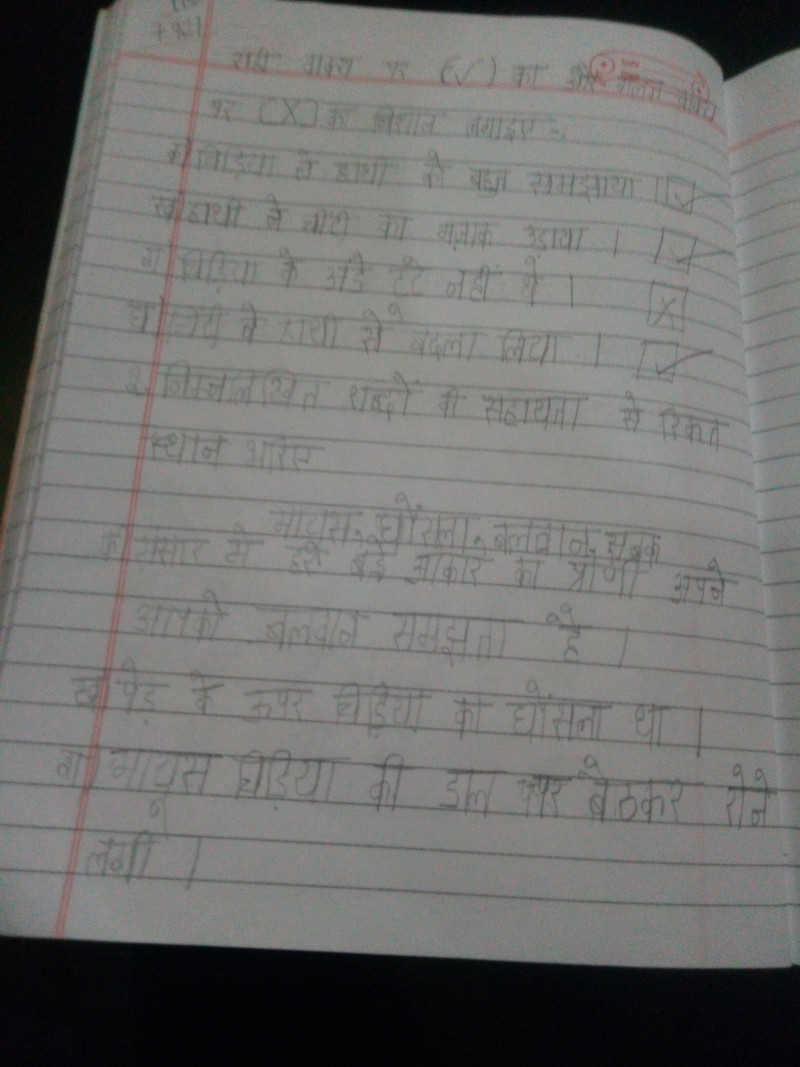 सही वाक्य पर (✓) का और गलत वाक्य
पर (X) का निशान लगाइए :-
क) चिड़िया ने हाथी को बहुत समझाया । ✓
ख) हाथी ने चींटी का मज़ाक उड़ाया । ✓
ग) चिड़िया के अंडे टूटे नहीं थे । X
घ) चिंटी ने हाथी से बदला लिया । ✓
2. निम्नलिखित शब्दों की सहायता से रिक्त
स्थान भरिए
मायूस, घोंसला, बलवान, सबक
क) संसार में हर बड़े आकार का प्राणी अपने
आपको बलवान समझता है ।
ख) पेड़ के ऊपर चिड़िया का घोंसला था ।
ग) मायूस चिड़िया की डाल पर बैठकर रोने
लगी ।